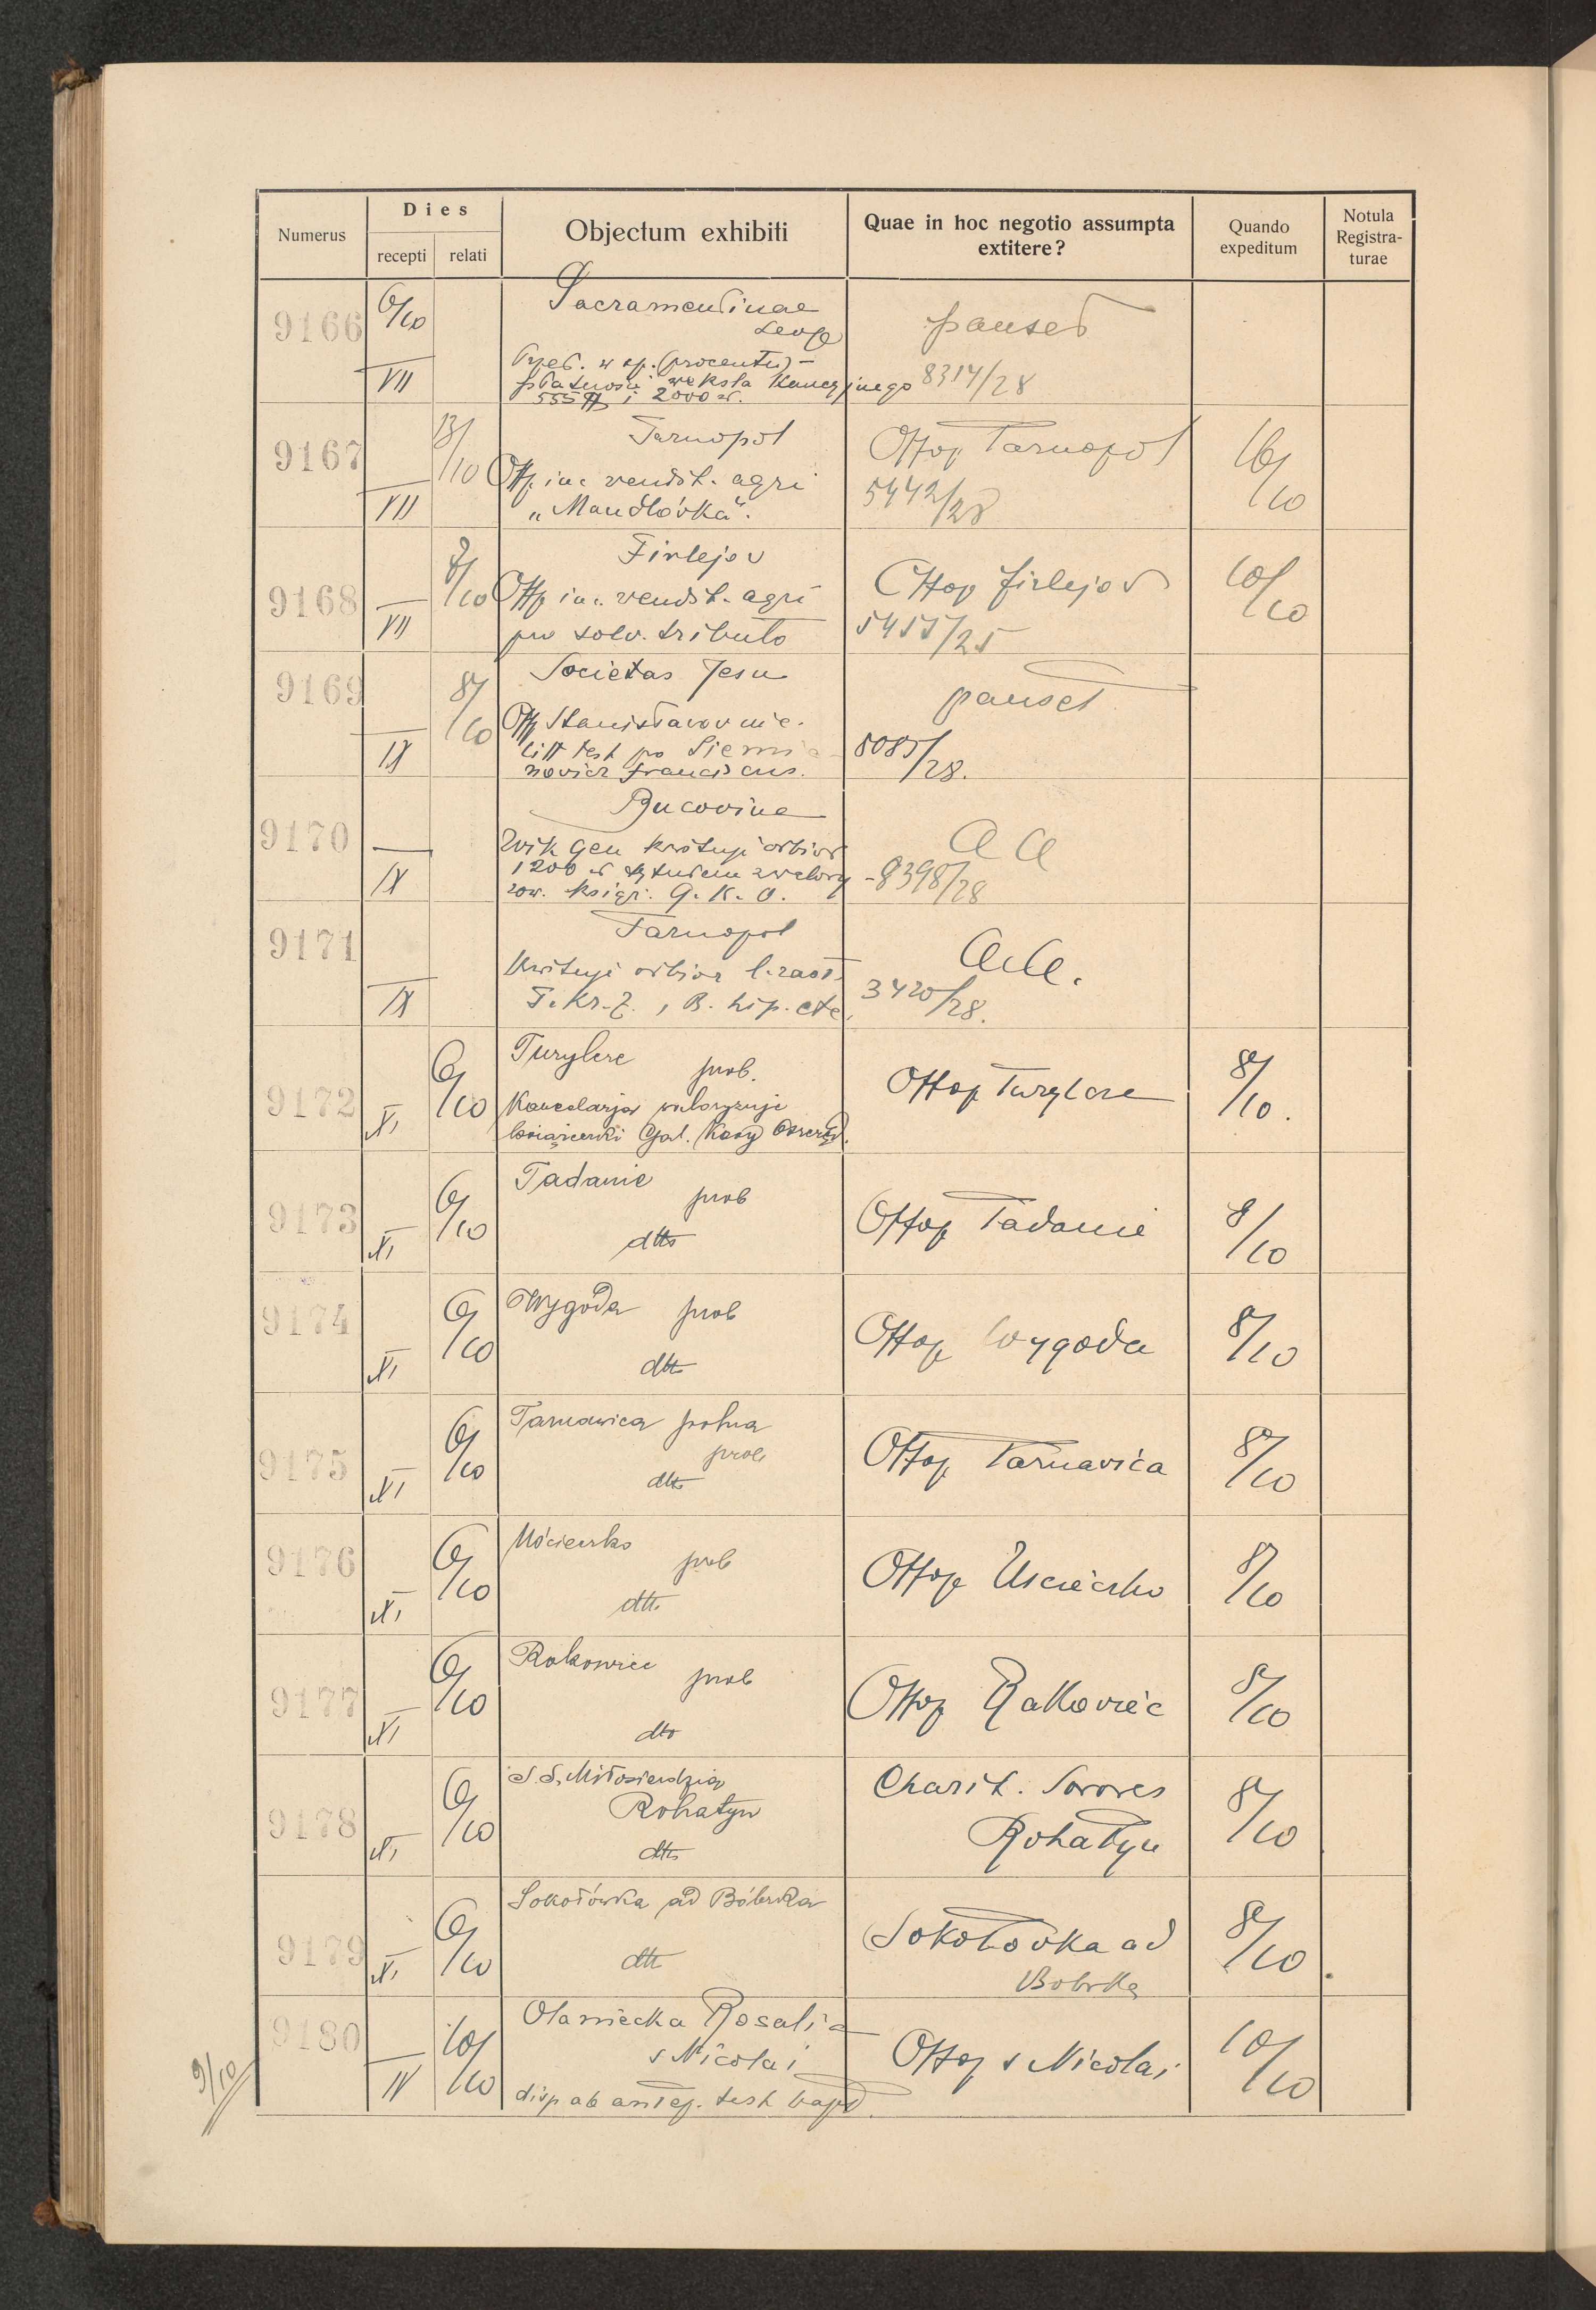 Numerus
Dies
recepti relati
Objectum exhibiti
Quae in hoc negotio assumpta
extitere?
Quando
expeditum
Notula
Registra-
turae
9166 6/10 VII
Sacramentinae
Leop
w sp. (procentu)
płatności weksla Kaucyjnego
555 i 2000 zł.
pauset
8314/28
9167 VII 13/10
Tarnopol
Off. inc. vendit. agri
„Mandlówka".
Offop Tarnopol
5442/28
16/10
9168 VII 8/10
Firlejov
Off inc. vendit. agri
pro solv. tributo
Offop Firlejov
5455/25
10/10
9169 IX 8/10
Societas Jesu
Off Stanislavov
litt test po
novicz Franciscus.
pauset
8085/28.
9170 IX
Bucovina
Wik Gen kwituje odbiór
1200 zł tytułem walory
zow. książ. G. K. O.
a a
8398/28
9171 IX
Tarnopol
Kwituje odbiór l. zast.
T. Kr. Z., B. hip. etc.
a a.
3420/28.
9172 XI 6/10
Turylcze prob.
Kancelarja waloryzuje
książeczki Gal. Kasy Oszczęd.
Offop Turylcze
8/10.
9173 XI 6/10
Tadanie prob
dtto
Offop Tadanie
8/10
9174 XI 6/10
Wygoda prob
dtto
Offop Wygoda
8/10
9175 XI 6/10
Tarnawica polna
prob
dtto
Offop Tarnavica
8/10
9176 XI 6/10
Uścieczko
prob
dtto
Offop Uscieczko
8/10
9177 XI 6/10
Rakowiec prob
dto
Offop Rakoviec
8/10
9178 XI 6/10
S.S. Miłosierdzia
Rohatyn
dtto
Charit. Sorores
Rohatyn
8/10
9179 XI 6/10
Sokołówka ad Bóbrka
dtto
Sokołovka ad
Bobrka
8/10
9180 IV 10/10
Rosalia
s Nicolai
disp ab
Offop s Nicolai
10/10
9/10